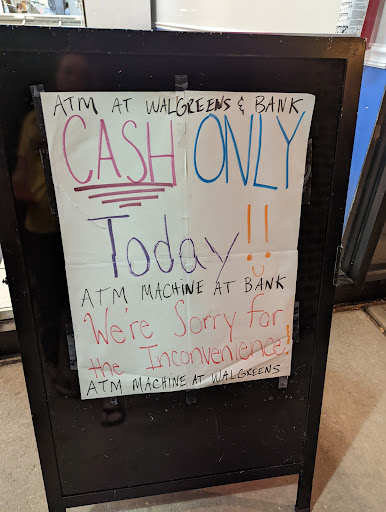 ATM AT WALGREENS & BANK
CASH ONLY
Today!!
ATM MACHINE AT BANK
We're Sorry for
the Inconvenience!
ATM MACHINE AT WALGREENS